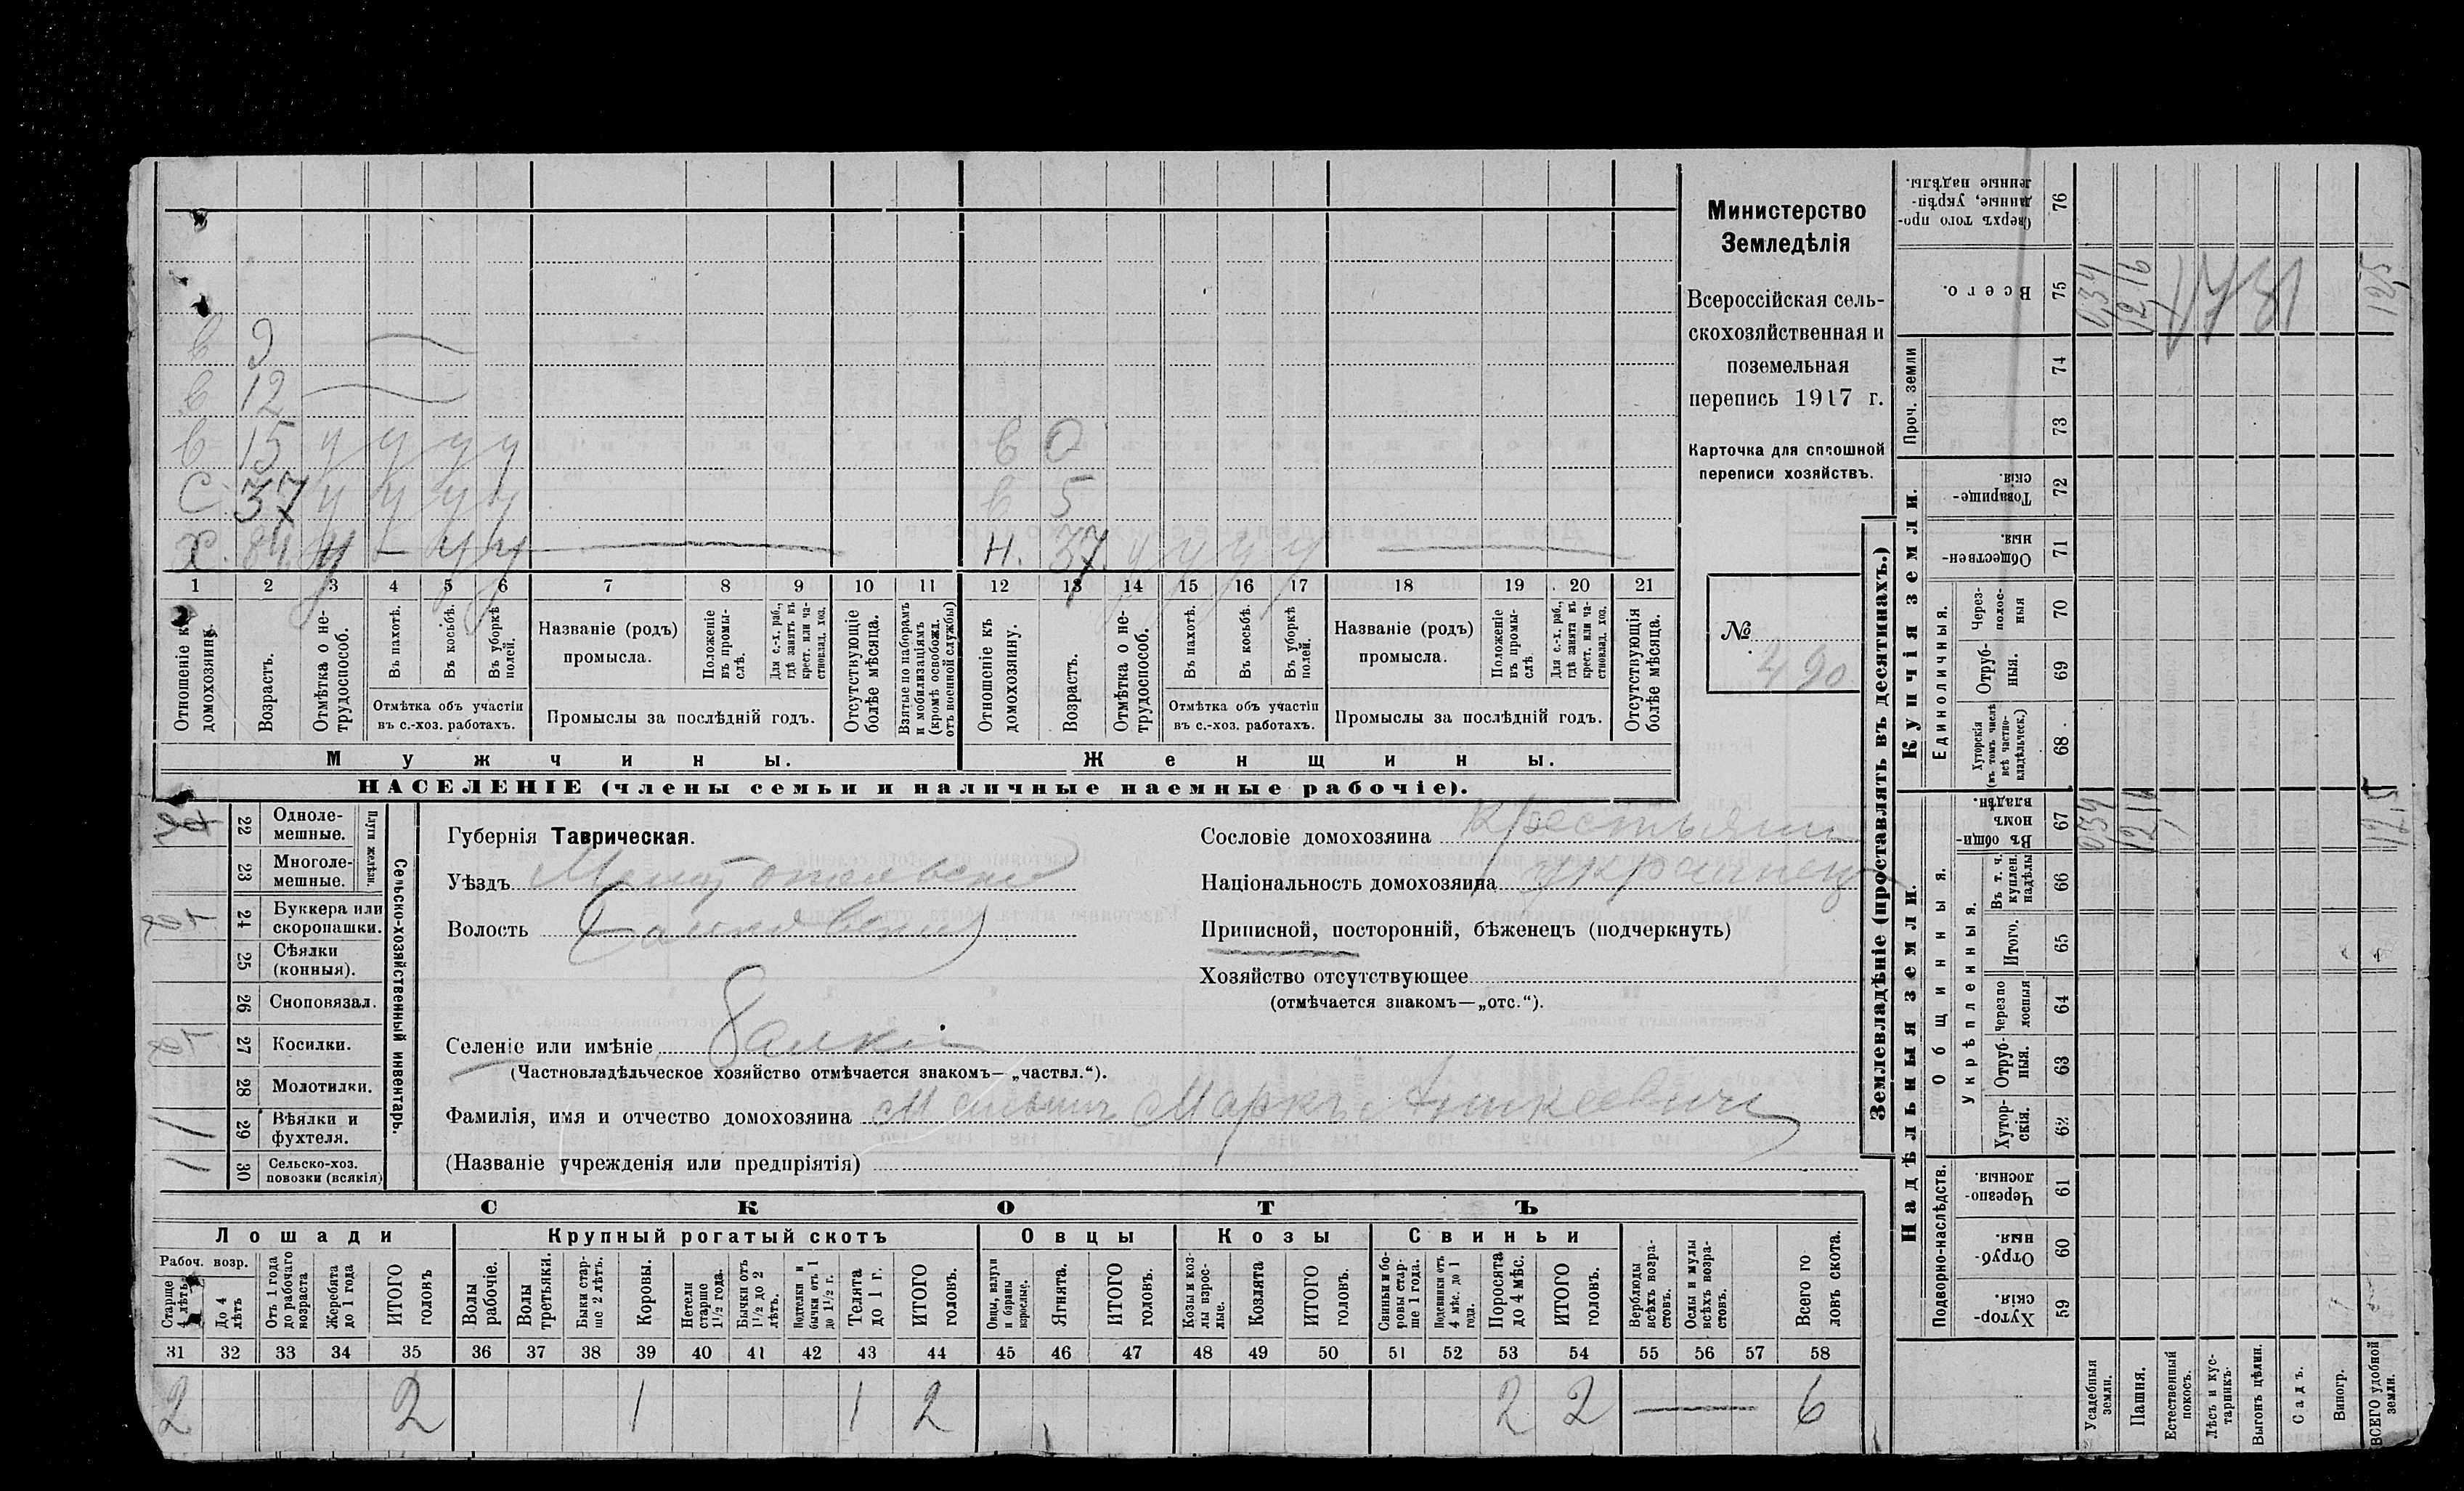 Министерство
Земледѣлія
Всероссійская сель-
скохозяйственная и
поземельная
перепись 1917 г.
Карточка для сплошной
переписи хозяйствъ.
№
490
в 9
в 12
в 15 у у у у
С 37 у у у у
Х. 84. Н — у у
в 0
в 5
Н. 37 у у у у
1 2 3 4 5 6 7 8 9 10 11 12 13 14 15 16 17 18 19 20 21
Отношеніе къ домохозяину.
Возрастъ.
Отмѣтка о не-трудоспособ.
Въ пахотѣ.
Въ косьбѣ.
Въ уборкѣ полей.
Отмѣтка объ участіи
въ с.-хоз. работахъ.
Названіе (родъ)
промысла.
Положеніе въ промы-слѣ.
Для с.-х. раб., гдѣ занятъ въ крест. или ча-стновлад. хоз.
Промыслы за послѣдній годъ.
Отсутствующіе болѣе мѣсяца.
Взятые по наборамъ и мобилизаціямъ (кромѣ освобожд. отъ военной службы)
Отношеніе къ домохозяину.
Возрастъ.
Отмѣтка о не-трудоспособ.
Въ пахотѣ.
Въ косьбѣ.
Въ уборкѣ полей.
Отмѣтка объ участіи
въ с.-хоз. работахъ.
Названіе (родъ)
промысла.
Положеніе въ промы-слѣ
Для с.-х. раб., гдѣ занята въ крест. или ча-стновлад. хоз.
Промыслы за послѣдній годъ.
Отсутствующія болѣе мѣсяца.
Мужчины.
Женщины.
НАСЕЛЕНІЕ (члены семьи и наличные наемные рабочіе).
Сельско-хозяйственный инвентарь.
Плуги желѣзн.
22 Одноле-мешные.
23 Многоле-мешные.
24 Буккера или скоропашки.
25 Сѣялки (конныя).
26 Сноповязал.
27 Косилки.
28 Молотилки.
29 Вѣялки и фухтеля. 1
30 Сельско-хоз. повозки (всякія) 1
Губернія Таврическая.
Уѣздъ Мелитопольскій
Волость
Селеніе или имѣніе Балки
(Частновладѣльческое хозяйство отмѣчается знакомъ— „частвл.“).
Фамилія, имя и отчество домохозяина Маркъ
(Названіе учрежденія или предпріятія)
Сословіе домохозяина крестьянинъ
Національность домохозяина украинецъ
Приписной, посторонній, бѣженецъ (подчеркнуть)
Хозяйство отсутствующее
(отмѣчается знакомъ—„отс.“).
СКОТЪ
Лошади
Крупный рогатый скотъ
Овцы
Козы
Свиньи
Рабоч. возр.
Старше 4 лѣтъ
До 4 лѣтъ
Отъ 1 года до рабочаго возраста
Жеребята до 1 года
ИТОГО головъ
Волы рабочіе.
Волы третьяки.
Быки стар-ше 2 лѣтъ.
Коровы.
Нетели старше 1½ года.
Бычки отъ 1½ до 2 лѣтъ.
Подтелки и бычки отъ 1 до 1½ г.
Телята до 1 г.
ИТОГО головъ.
Овцы, валухи и бараны взрослые.
Ягнята.
ИТОГО головъ.
Козы и коз-лы взрос-лые.
Козлята
ИТОГО головъ.
Свиньи и бо-ровы стар-ше 1 года.
Подсвинки отъ 4 мѣс. до 1 года.
Поросята до 4 мѣс.
ИТОГО головъ.
Верблюды всѣхъ возра-стовъ.
Ослы и мулы всѣхъ возра-стовъ.
Всего го ловъ скота.
31 32 33 34 35 36 37 38 39 40 41 42 43 44 45 46 47 48 49 50 51 52 53 54 55 56 57 58
2 2 1 1 2 2 2 — 6
Землевладѣніе (проставлять въ десятинахъ.)
Надѣльныя земли.
Купчія земли.
Проч. земли
Подворно-наслѣдств.
Общинныя.
Укрѣпленныя.
Единоличныя.
Сверхъ того про-данные, укрѣп-ленные надѣлы. 76
Всего. 75
74
73
Товарище-скія. 72
Обществен-ныя. 71
Через-полос-ныя 70
Отруб-ныя. 69
Хуторскія (въ томъ числѣ всѣ частно-владѣльческ.) 68
Въ общи-номъ владѣн. 67
Въ т. ч. куплен. надѣлы 66
Итого. 65
Черезпо лосныя 64
Отруб-ныя. 63
Хутор-скія. 62
Черезпо-лосныя. 61
Отруб-ныя. 60
Хутор-скія. 59
034 1216 125
034 1216 125
Усадебныя земли.
Пашня.
Естественный покосъ.
Лѣсъ и кус-тарникъ.
Выгонъ цѣлин.
Садъ.
Виногр.
ВСЕГО удобной земли.